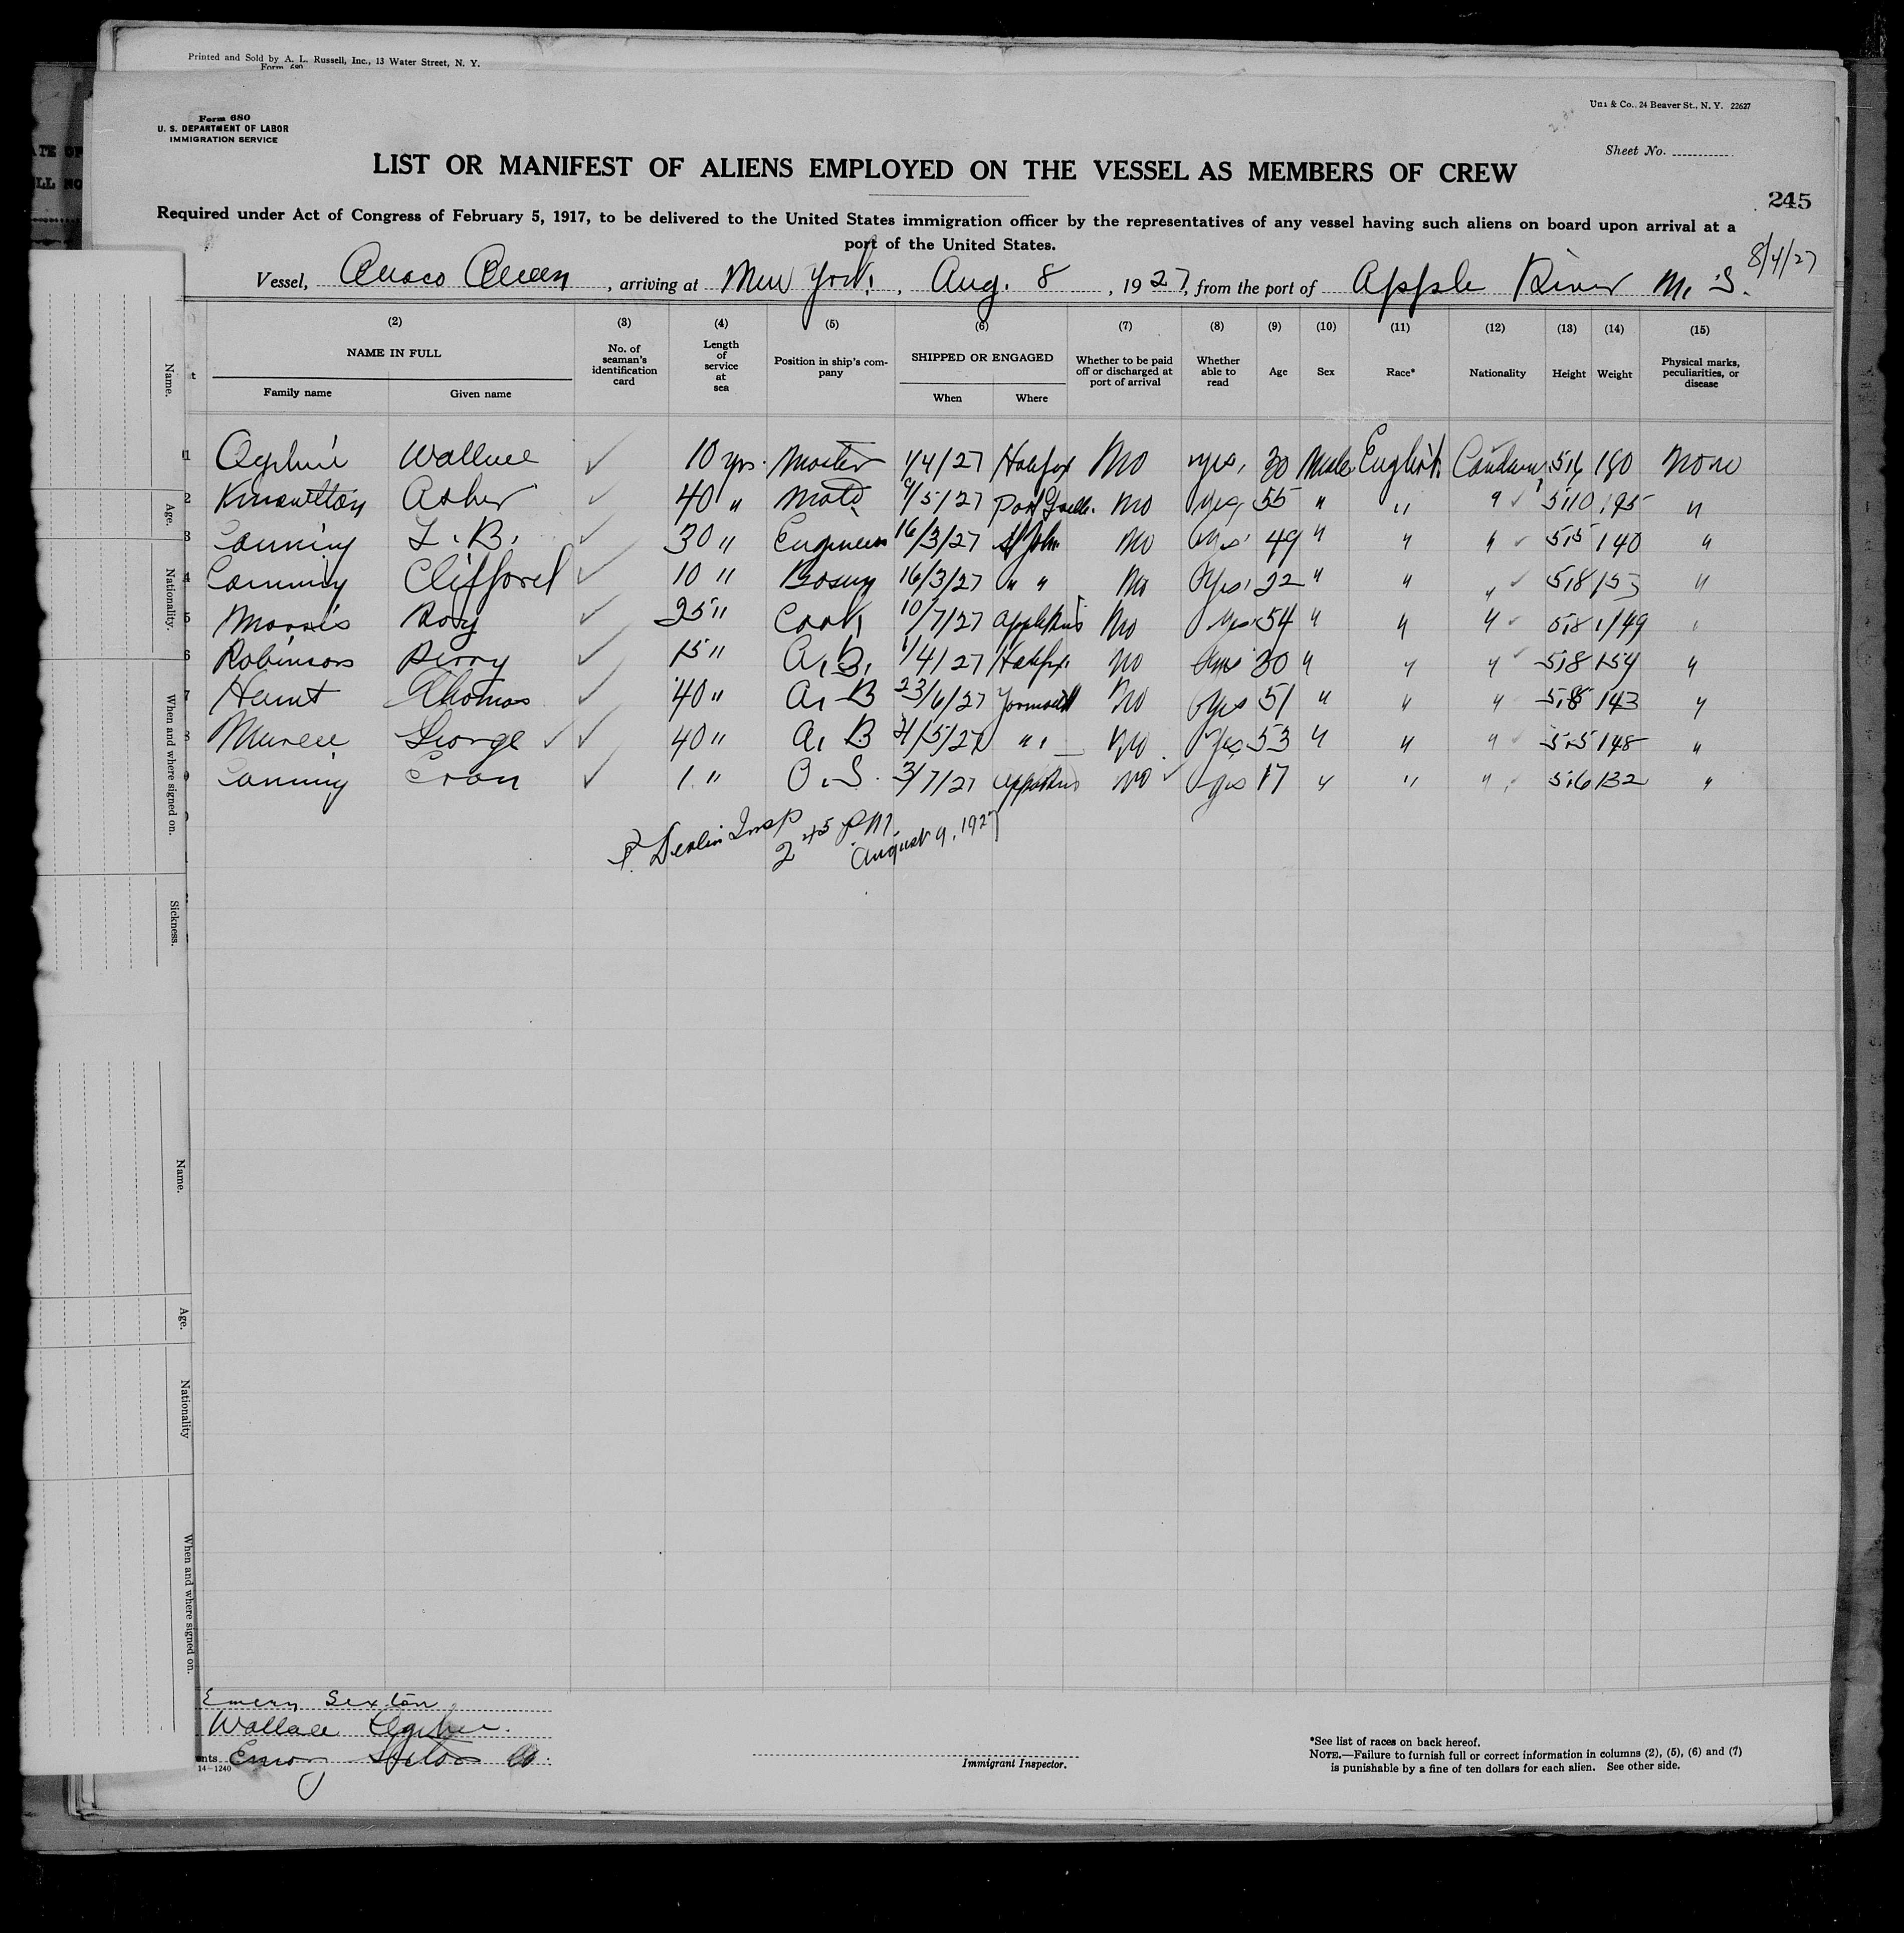 Printed and Sold by A. L. Russell, Inc., 13 Water Street, N. Y.
Form 680
Form 680
U. S. DEPARTMENT OF LABOR
IMMIGRATION SERVICE
& Co., 24 Beaver St., N. Y. 22627
Sheet No.
LIST OR MANIFEST OF ALIENS EMPLOYED ON THE VESSEL AS MEMBERS OF CREW
245
Required under Act of Congress of February 5, 1917, to be delivered to the United States immigration officer by the representatives of any vessel having such aliens on board upon arrival at a
port of the United States.
8/4/27
Vessel, Queen, arriving at New York, Aug. 8, 1927, from the port of Apple River N. S.
(2) (3) (4) (5) (6) (7) (8) (9) (10) (11) (12) (13) (14) (15)
NAME IN FULL
Family name Given name
No. of seaman's identification card
Length of service at sea
Position in ship's company
SHIPPED OR ENGAGED
When Where
Whether to be paid off or discharged at port of arrival
Whether able to read
Age Sex Race* Nationality Height Weight
Physical marks, peculiarities, or disease
1 Wallace 10 yrs. Master 1/4/27 Halifax No yes, 30 Male English Canadian 5,6 180 None
2 Knowlton Asher 40 " Mate 9/5/27 No yes, 55 " " " 5,10 195 "
3 Canning L. B. 30 " Engineer 16/3/27 St John No yes 49 " " " 5,5 140 "
4 Canning Clifford 10 " Bosun 16/3/27 " " No yes 22 " " " 5,8 153 "
5 Morris Roy 25 " Cook 10/7/27 No yes 54 " " " 5,8 149
6 Robinson Perry 15 " A. B. 1/4/27 Halifax No yes 30 " " " 5,8 154 "
7 Hunt Thomas 40 " A. B 23/6/27 Yarmouth No yes 51 " " " 5,8 143 "
8 George 40 " A. B /5/27 " " No yes 53 " " " 5,5 148 "
9 Canning 1 " O. S. 3/7/27 No yes 17 " " " 5,6 132 "
Devlin Insp
2 45 PM
August 9, 1927
Name.
Age.
Nationality.
When and where signed on.
Sickness.
Name.
Age.
Nationality
When and where signed on.
Emery Sexton
Wallace
14—1240
Immigrant Inspector.
*See list of races on back hereof.
NOTE.—Failure to furnish full or correct information in columns (2), (5), (6) and (7)
is punishable by a fine of ten dollars for each alien. See other side.